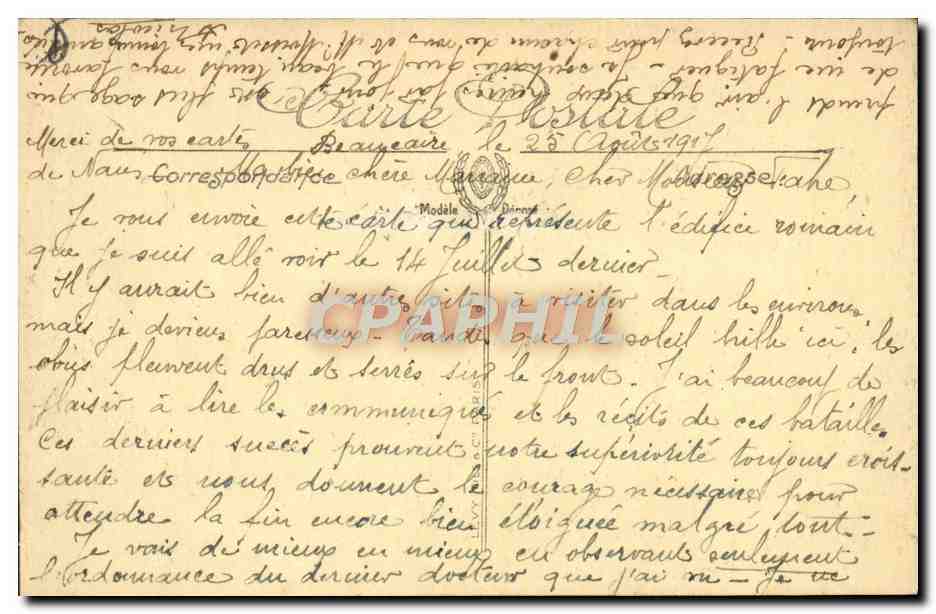 Carte Postale
Merci de vos cartes Beaucaire, le 25 Août 1917
de Nans Correspondance Adresse
Ma bien chère Marraine, Cher Monsieur
Modèle Déposé
Je vous envoie cette carte qui représente l'édifice romain
que je suis allé voir le 14 Juillet dernier -
Il y aurait bien d'autres sites à visiter dans les environs,
mais je deviens paresseux - Tandis que le soleil brille ici, les
obus pleuvent drus et serrés sur le front. J'ai beaucoup de
plaisir à lire les communiqués et les récits de ces batailles
Ces derniers succès prouvent notre supériorité toujours crois-
sante et nous donnent le courage nécessaire pour
attendre la fin encore bien éloignée malgré tout -
Je vais de mieux en mieux en observant seulement
l'ordonnance du dernier docteur que j'ai vu - Je ne
prends l'air que deux heures par jour, est plus sage que
de me fatiguer - Je souhaite que le beau temps vous favorise
toujours - Recevez pour chacun de vous et Mr
CPAPHIL